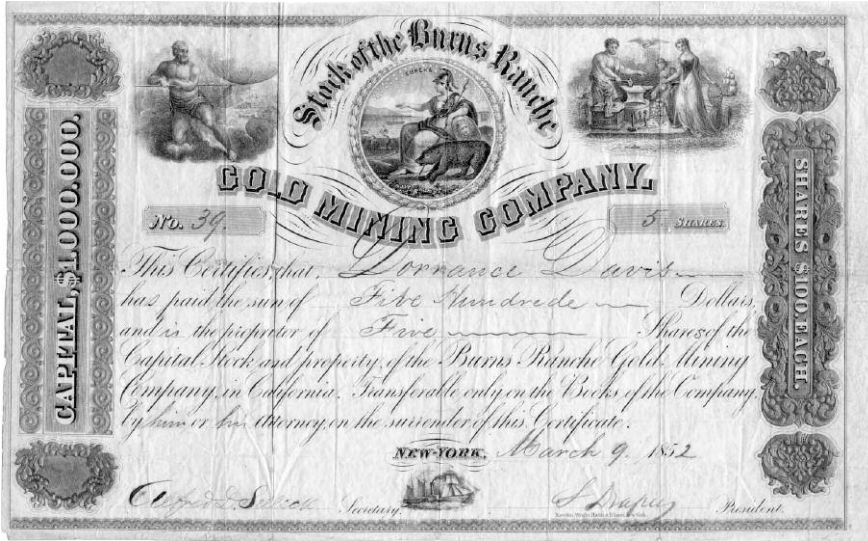 Stock of the Burns Ranche
EUREKA
GOLD MINING COMPANY.
CAPITAL, $1,000,000.
SHARES $100, EACH.
No. 39.
5 SHARES
This Certifies, that, Dorrance Davis
has paid the sum of Five Hundrede Dollars,
and is the proprietor of Five Shares of the
Capital Stock and property, of the Burns Ranche Gold Mining
Company, in California. Transferable only on the Books of the Company,
by him or his Attorney, on the surrender of this Certificate.
NEW-YORK, March 9. 1852
Secretary.
S Draper
President.